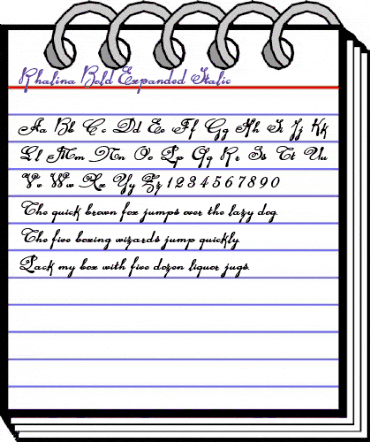 Rhalina Bold Expanded Italic
Aa Bb Cc Dd Ee Ff Gg Hh Ii Jj Kk
Ll Mm Nn Oo Pp Qq Rr Ss Tt Uu
Vv Ww Xx Yy Zz 1 2 3 4 5 6 7 8 9 0
The quick brown fox jumps over the lazy dog.
The five boxing wizards jump quickly.
Pack my box with five dozen liquor jugs.